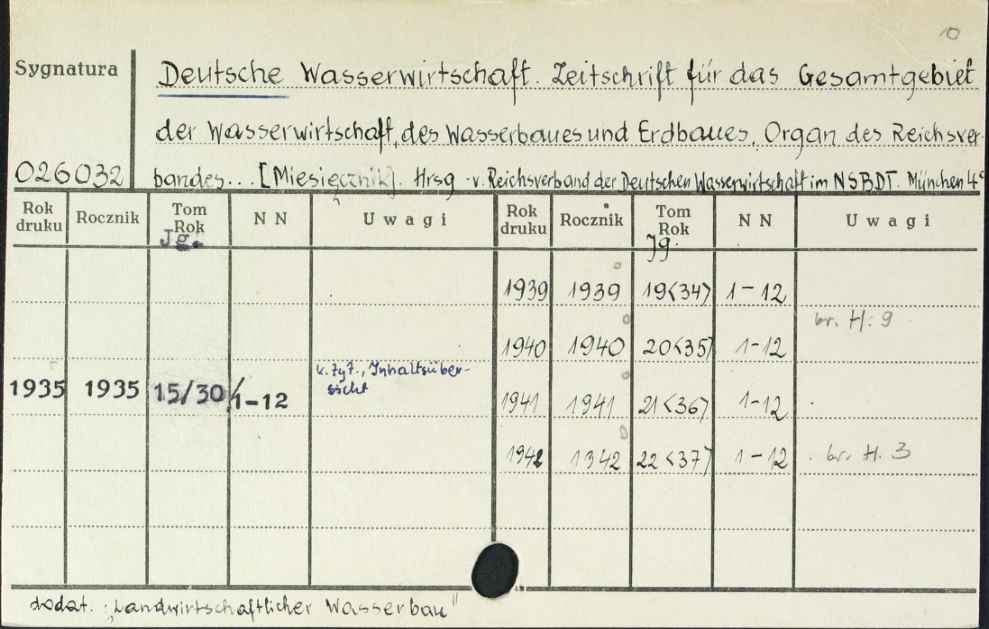 10
Sygnatura
026032
Deutsche Wasserwirtschaft. Zeitschrift für das Gesamtgebiet
der Wasserwirtschaft, des Wasserbaues und Erdbaues, Organ des Reichsver-
bandes... [Miesięcznik]. Hrsg. v. Reichsverband der Deutschen Wasserwirtschaft im NSBDT. München 4°
Rok druku Rocznik Tom Rok Jg. NN Uwagi Rok druku Rocznik Tom Rok Jg. NN Uwagi
1939 1939 19<34> 1-12
br. H. 9
1940 1940 20<35> 1-12
k. tyt., Inhaltsüber-
sicht
1935 1935 15/30/ 1-12
1941 1941 21<36> 1-12
1942 1942 22<37> 1-12 br. H. 3
dodat.: "Landwirtschaftlicher Wasserbau"